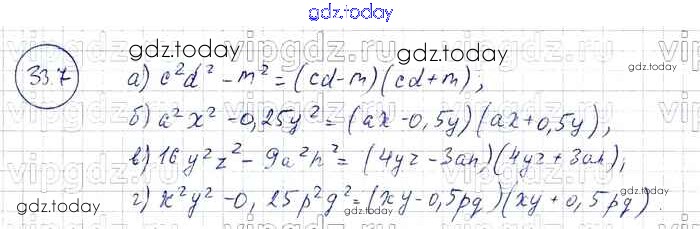 gdz.today
33.7
gdz.today
gdz.today
а) c²d² - m² = (cd - m)(cd + m);
б) a²x² - 0,25y² = (ax - 0,5y)(ax + 0,5y),
в) 16y²z² - 9a²n² = (4yz - 3an)(4yz + 3an),
г) x²y² - 0,25p²g² = (xy - 0,5pg)(xy + 0,5pg)
gdz.today
gdz.today
gdz.today
vipgdz.ru
vipgdz.ru
vipgdz.ru